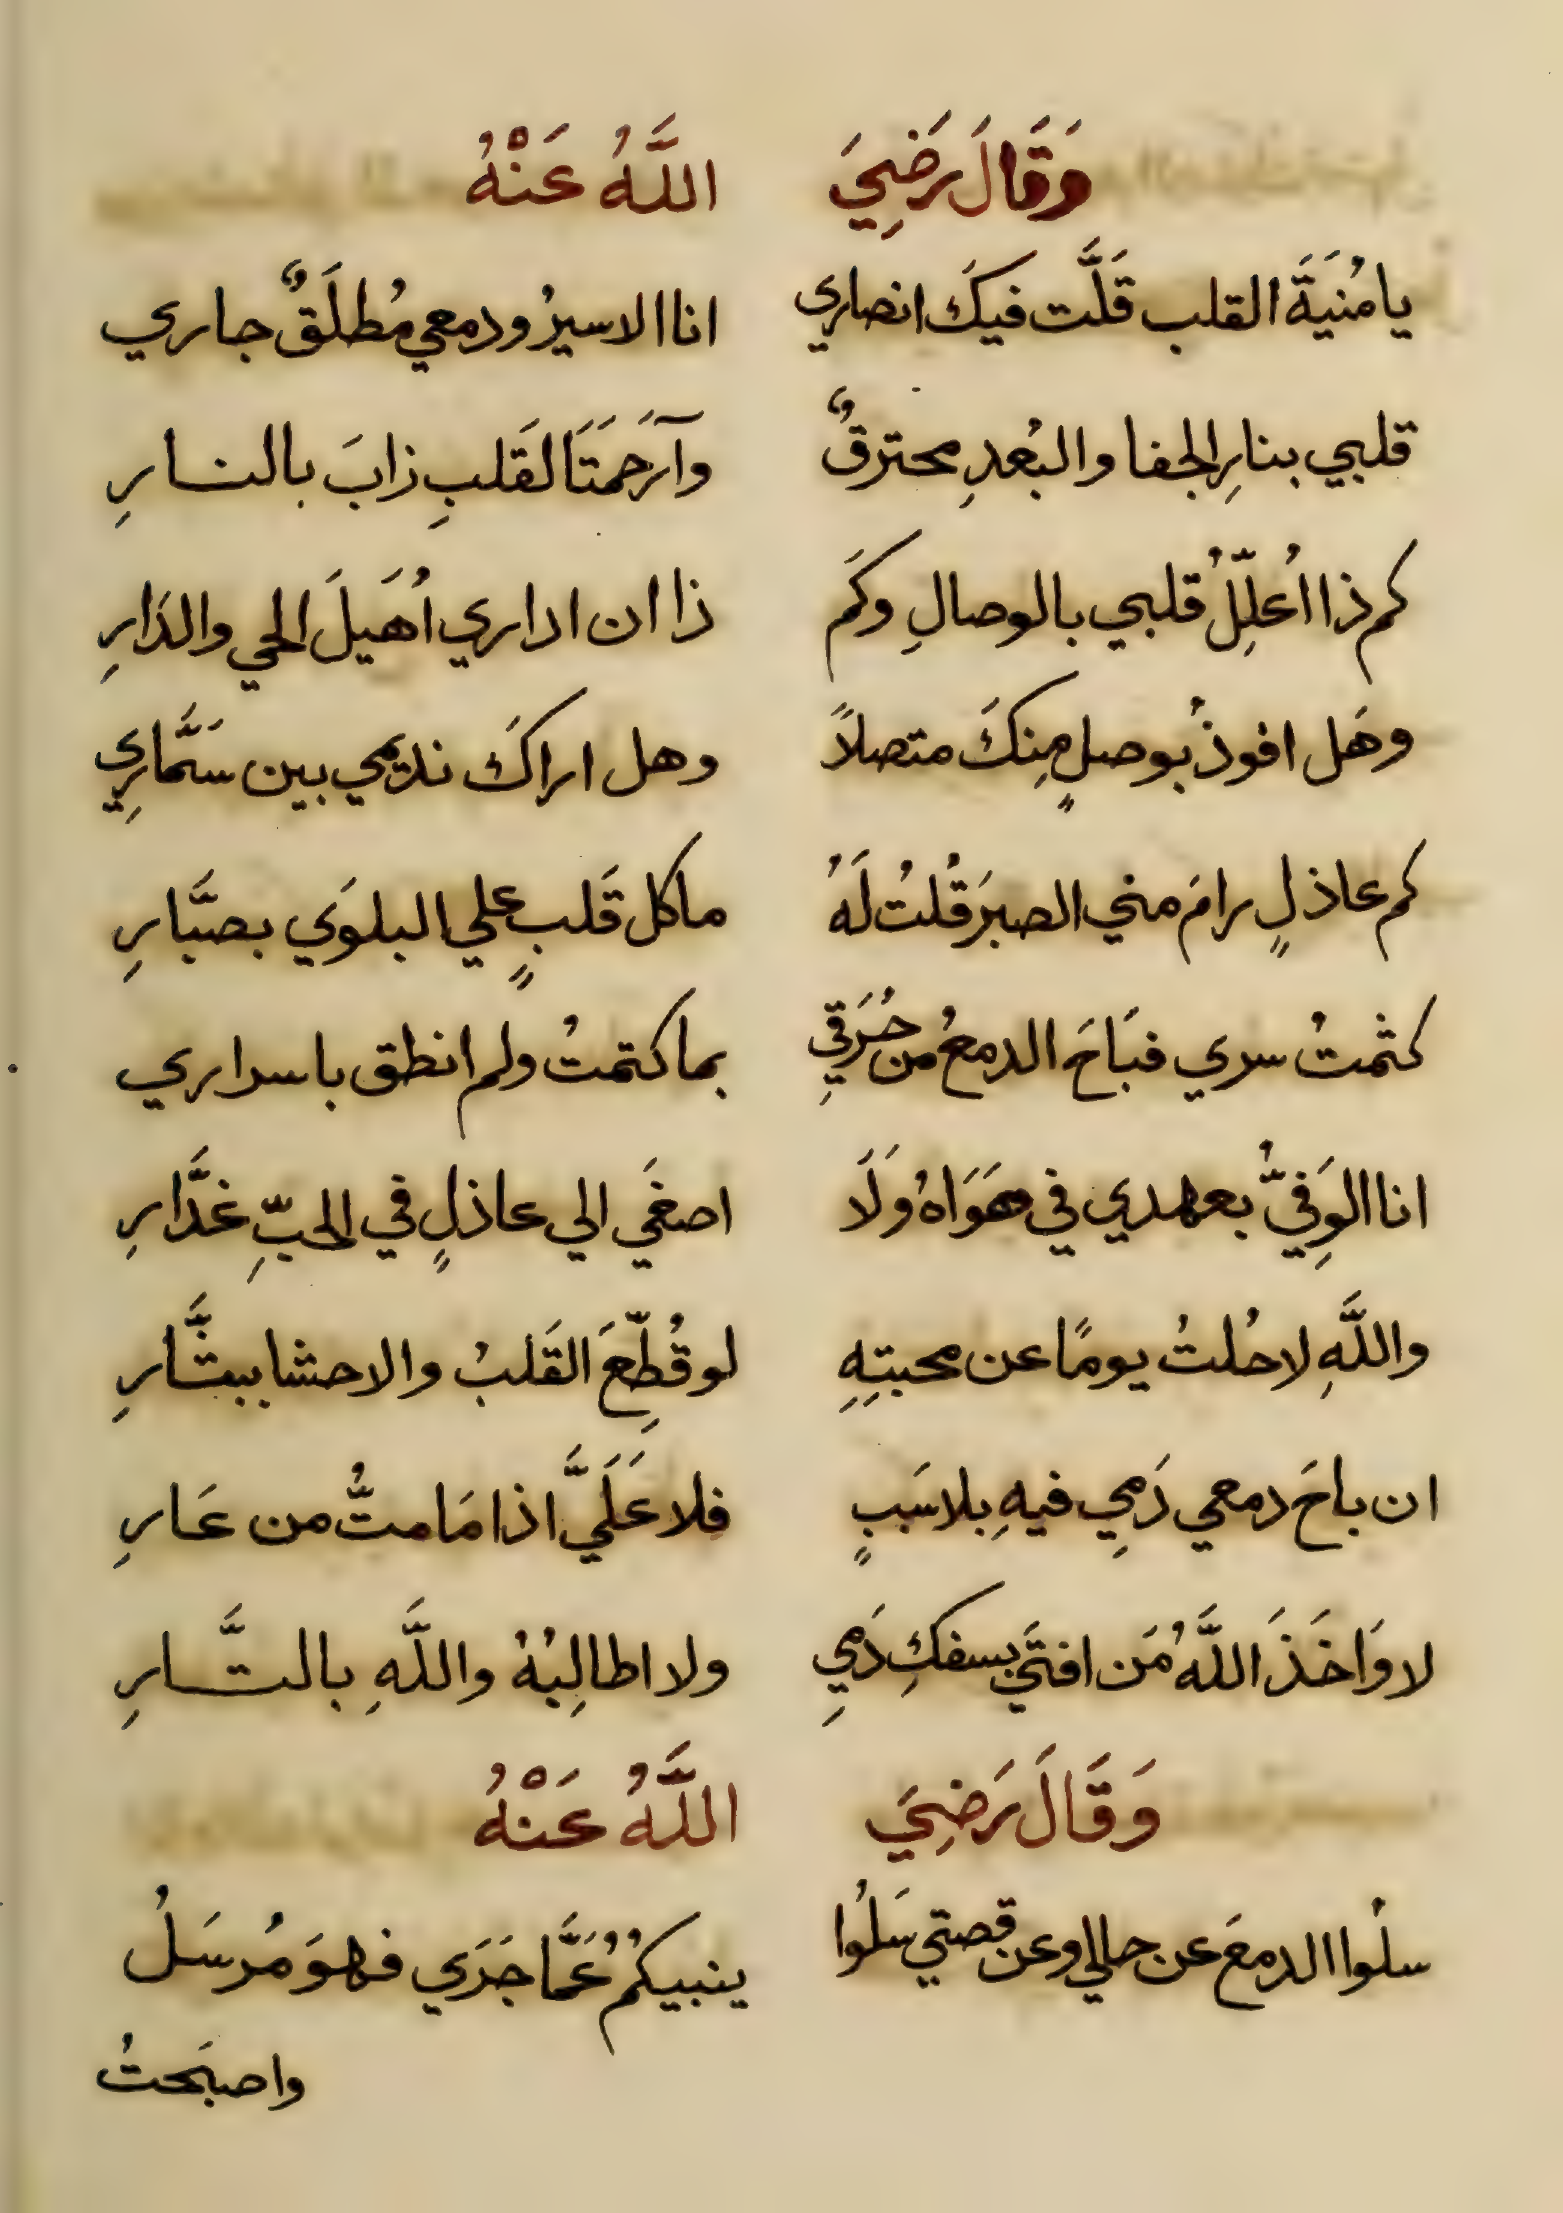 وَقَالَ رَضِيَ اللَّهُ عَنْهُ
يا مُنيَةَ القلب قَلَّت فيكَ انصاري انا الاسيرُ ودمعي مُطلَقٌ جاري
قلبي بنارِ الجفا والبُعدِ محترقٌ وآرَحمَتَا لقَلبِ زابَ بالنارِ
كم ذا اُعلِّلُ قلبي بالوصالِ وكَم ذا ان اداري اُهَيلَ الحي والدَارِ
وهَل افوذُ بوصلٍ مِنكَ متصلاً وهل اراكَ نديمي بين سَمَّارِي
كم عاذلٍ رامَ مني الصبرَ قُلتُ لَهُ ما كل قَلبٍ علي البلوَي بصبَّارِ
كثمتُ سري فبَاحَ الدمعُ من حُرَقِي بما كتمتُ ولم انطق باسراري
انا الوَفِيُّ بعهدي في هَوَاهُ وَلَا اصغَي الي عاذلٍ في الحبِّ غَدَّارِ
واللَّهِ لا حُلتُ يومًا عن محبتِهِ لو قُطِّعَ القَلبُ والاحشا ببتَّارِ
ان باحَ دمعي دَمِي فيهِ بلا سَببٍ فلا عَلَيَّ اذا مَا متُّ من عَارِ
لا وَاخَذَ اللَّهُ مَن افتَي بسفكِ دَمِي ولا اطالِبُهُ واللَّهِ بالتَّارِ
وَقَالَ رَضِيَ اللَّهُ عَنْهُ
سلُوا الدمعَ عن حالي وعن قصتي سَلُوا ينبيكُمُ عَمَّا جَرَي فهوَ مُرسَلُ
واصبَحتُ